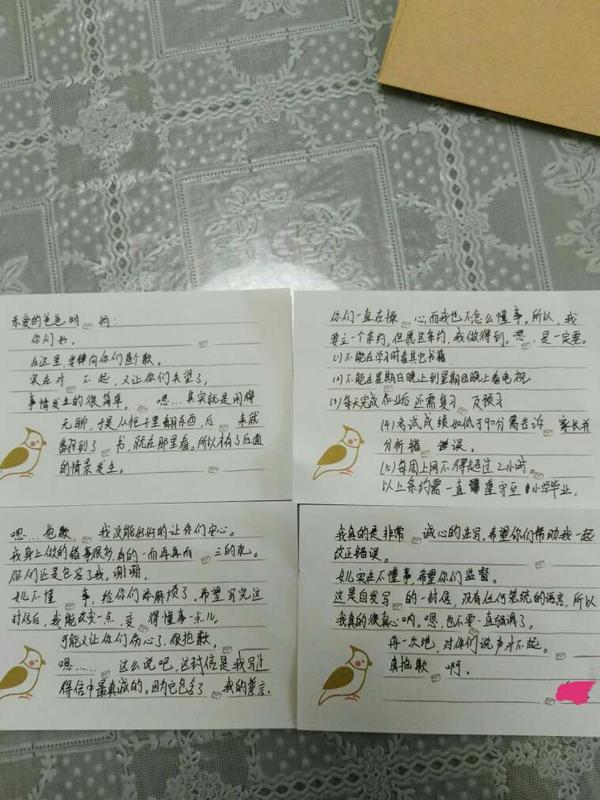 亲爱的爸爸吗 妈:
你们好。
在这里,要棒向你们道个歉。
实在对 不起,又让你们失望了,
事情发生的很简单。 嗯…其实就是闲得
无聊,于是从柜子里翻东西,后 来就
翻到了 书,就在那里看。所以有了后面
的情景发生。
嗯…抱歉, 我没能好好的让你们安心。
我身上做的错事很多,有的一而再再而 三的犯。
你们还是包容了我。谢谢。
女儿不懂 事,给你们添麻烦了,希望写完这
封信后,我能改变一点,变 得懂事一点儿。
可能又让你们伤心了,很抱歉。
嗯…… 这么说吧,这封信是我写过
得信中最真诚的。因为它包含了 我的誓言.
你们一直在操 心,而我也不怎么懂事。所以,我
要立一个条约,但愿这条约,我做得到。嗯,是一定要。
(1)不能在学习时看其它书籍.
(2)不能在星期日晚上到星期四晚上看电视.
(3)每天完成作业后还需复习 及预习
(4)考试成绩如低于90分需告诉 家长并
分析错 误误。
(5)每周上网不得超过2小时。
以上条约需一直 遵守至 小学毕业。
我真的是非常 诚心的去写,希望你们帮助我一起
改正错误。
女儿实在不懂事,希望你们监督。
这是自发写 的一封信,没有任何笼统的语言,所以
我真的很真心呐,嗯,也不要一直强调了。
再一次地,对你们说声对不起。
真抱歉 啊。